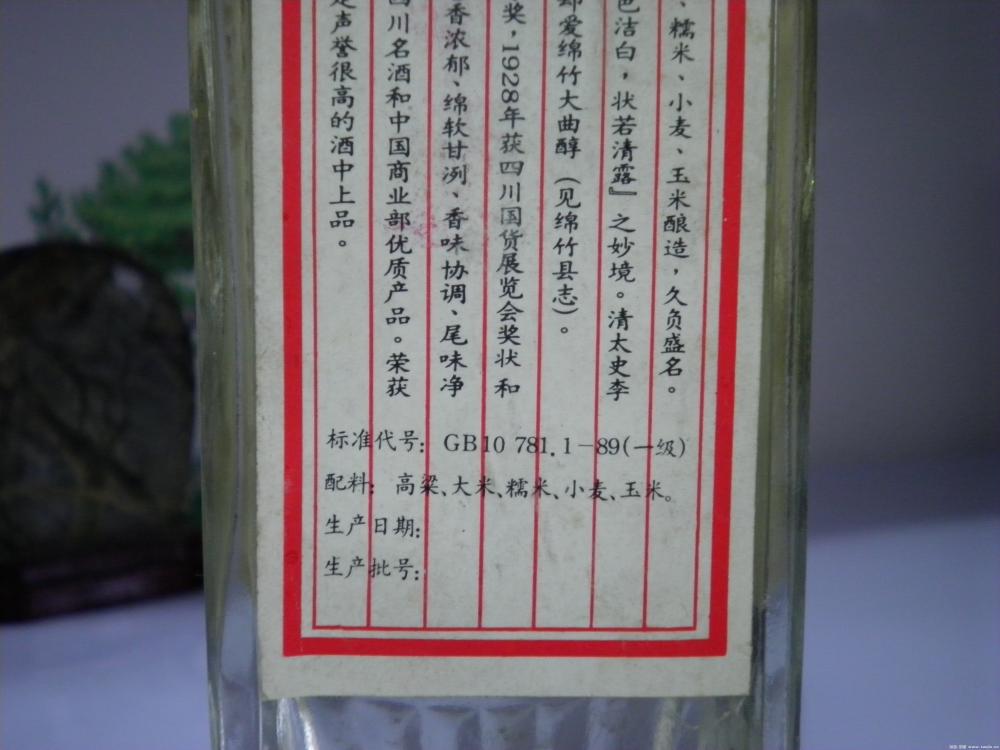 、糯米、小麦、玉米酿造，久负盛名。
色洁白，状若清露』之妙境。清太史李
却爱绵竹大曲醇（见绵竹县志）。
奖，1928年获四川国货展览会奖状和
香浓郁、绵软甘洌、香味协调、尾味净
四川名酒和中国商业部优质产品。荣获
是声誉很高的酒中上品。
标准代号：GB10 781.1-89(一级)
配料：高粱、大米、糯米、小麦、玉米。
生产日期：
生产批号：